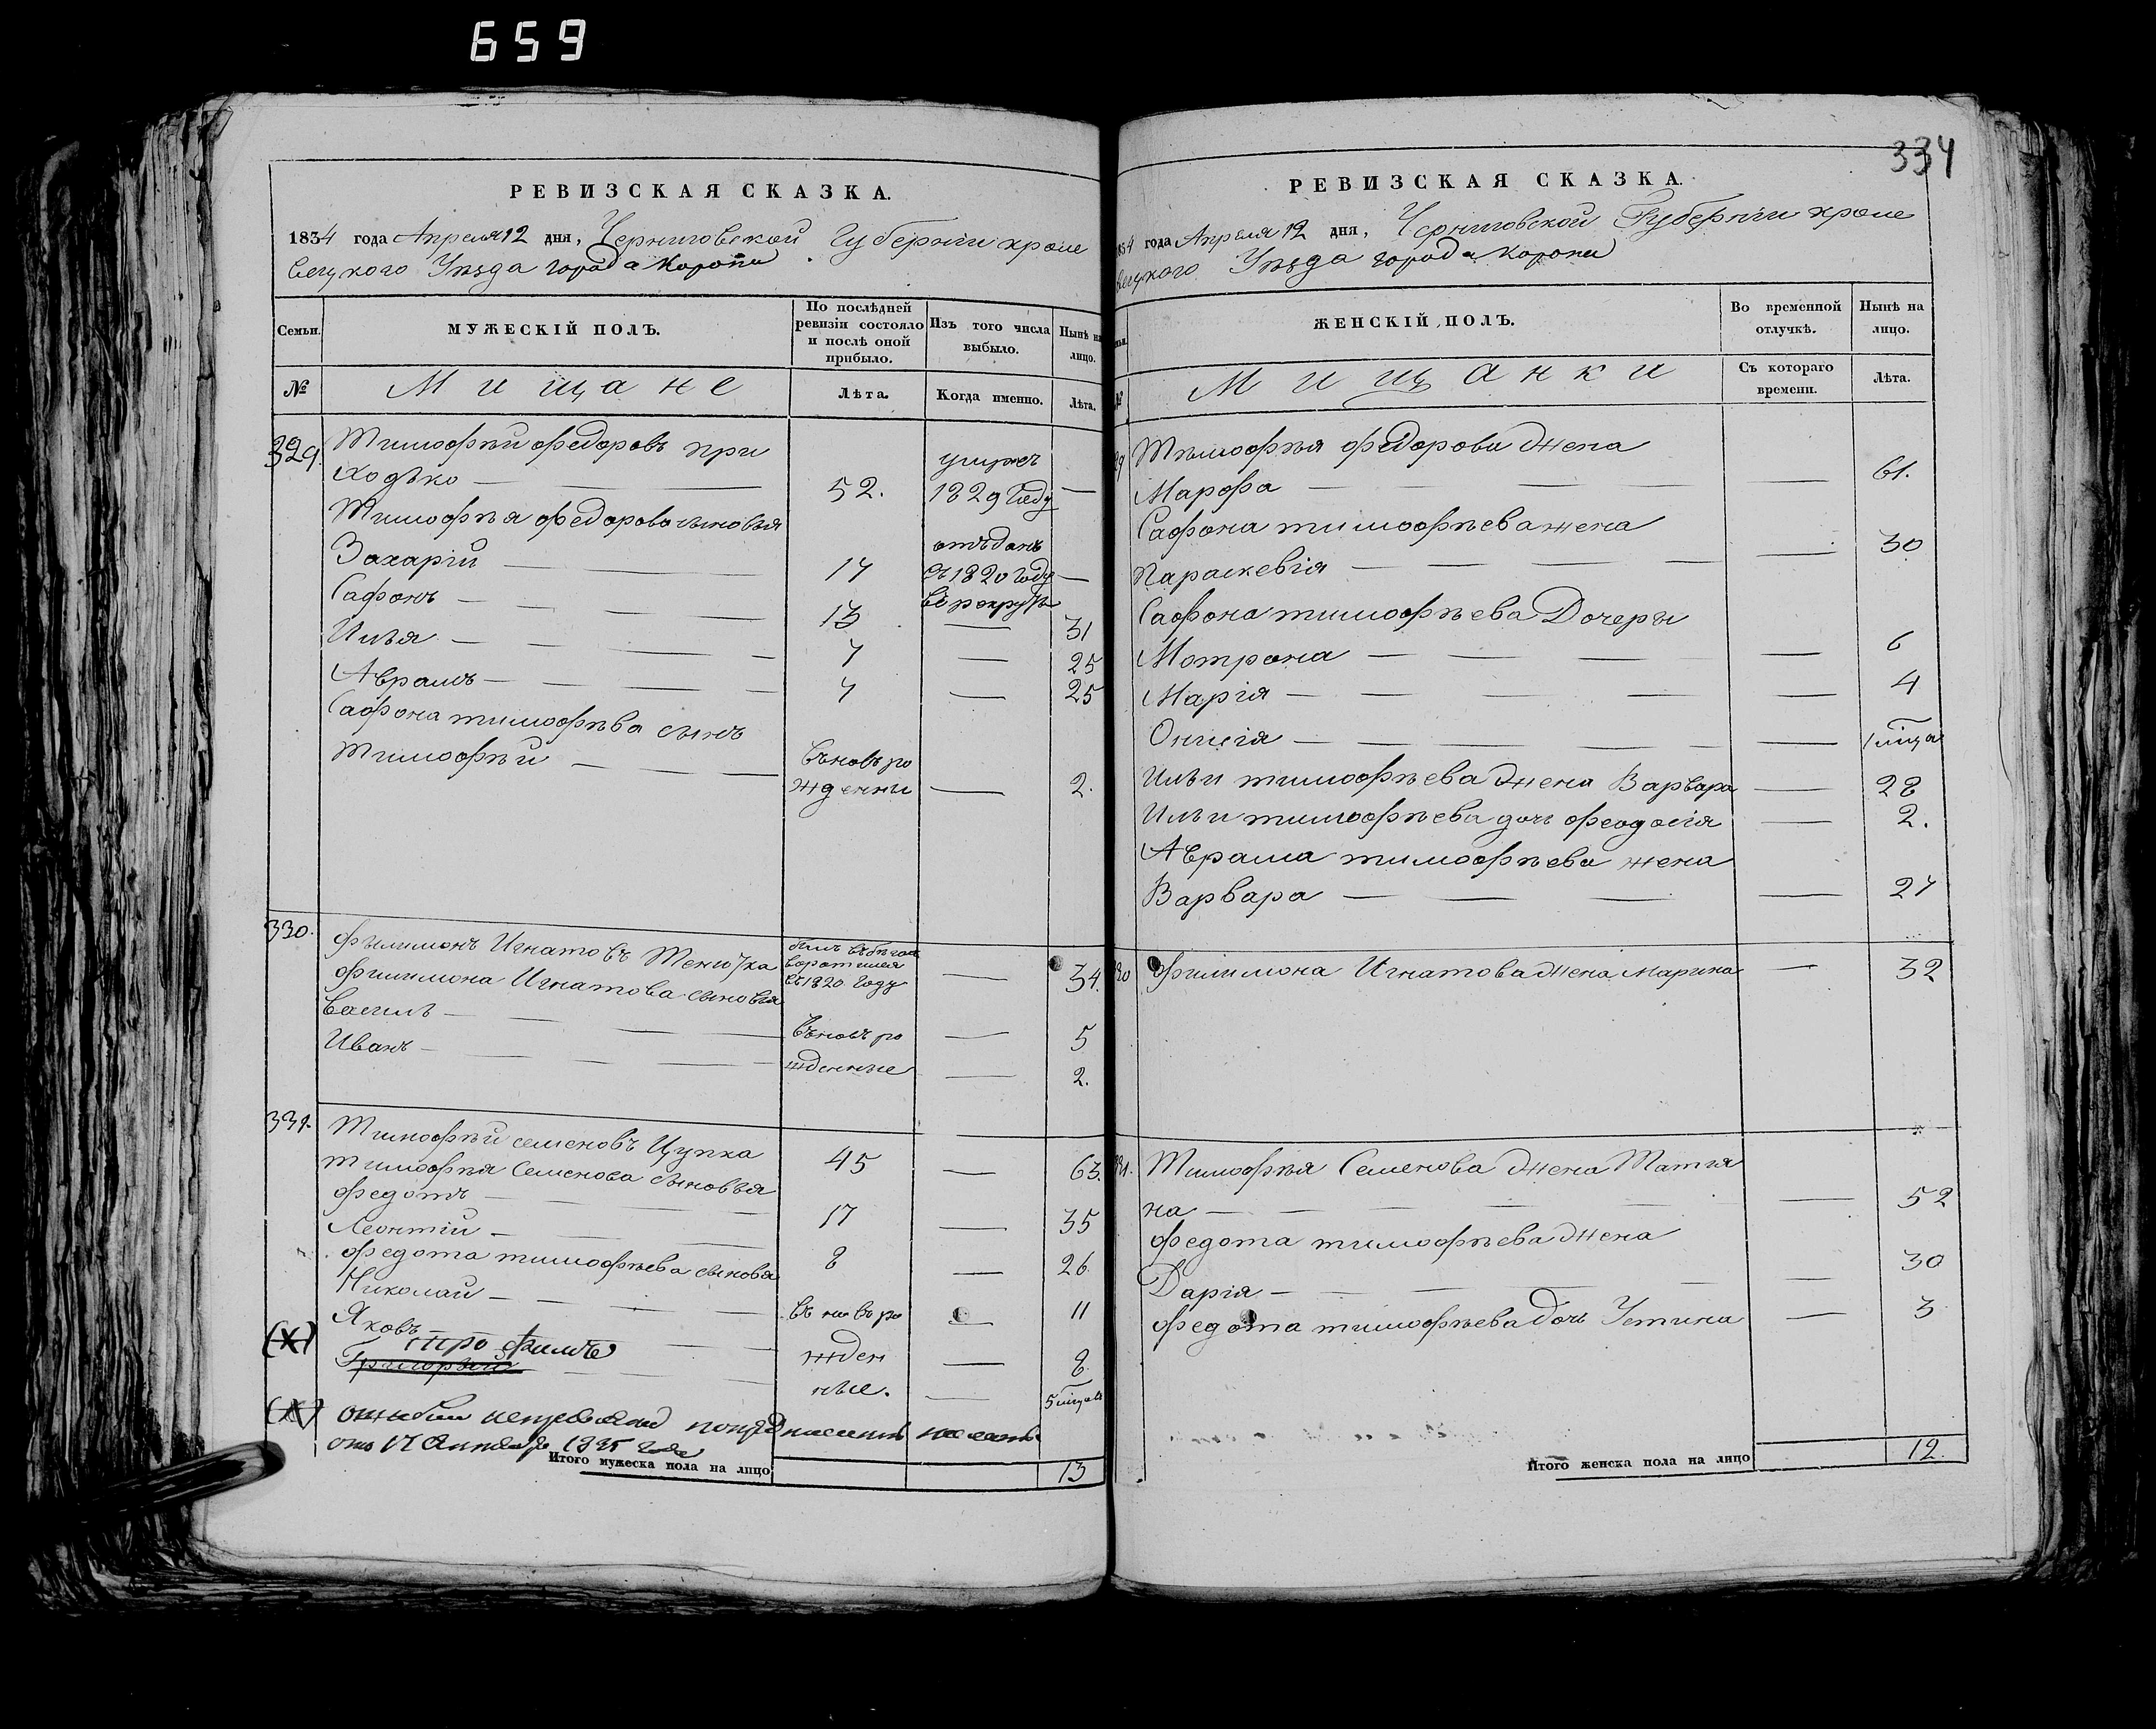 659
334
РЕВИЗСКАЯ СКАЗКА.
1834 года Апреля 12 дня, Черниговской Губернѣи кроле
вецкого Уѣзда города Коропа
Семьи.
МУЖЕСКІЙ ПОЛЪ.
По послѣдней ревизіи состояло и послѣ оной прибыло.
Изъ того числа выбыло.
Нынѣ на лицо.
№
Мищане
Лѣта.
Когда именно.
Лѣта.
329. Тимофѣй Федоровъ при
ходько — 52. умръ 1829 году —
Тимофѣя Федорова сыновья
Захарій — 14 отъданъ въ 1820 году въ рекруты —
Сафонъ — 13 — 31
Илья — 7 — 25
Аврамъ — 7 — 25
Сафона тимофѣва сынъ
Тимофѣй — въновь ро
ждении — 2.
330. Филимонъ Игнатовъ былъ въ бѣгахъ
воротился
въ 1820 году — 34.
Филимона Игнатова сыновья
Василь — въновь ро — 5
Иванъ — жденные — 2.
331. Тимофѣй семеновъ Цупка 45 — 63.
Тимофѣя Семенова сыновья
Федотъ — 17 — 35
Леонтий — 8 — 26
Федота тимофѣева сыновья
Николай — въ новь ро — 11
Яковъ — жден — 8.
(х) Трофимъ
Григорий — ные. — 5 мѣца
(х)
от 17 1835 года
Итого мужеска пола на лицо 13
РЕВИЗСКАЯ СКАЗКА.
1834 года Апреля 12 дня, Черниговской Губернѣи кроле
вецкого Уѣзда города Коропа
ЖЕНСКІЙ ПОЛЪ.
Во временной отлучкѣ.
Нынѣ на лицо.
№
Мищанки
Съ котораго времени.
Лѣта.
29 Тимофѣя Федорова жена
Марфа — — 61.
Сафона тимофѣева жена
Параскевія — — 30
Сафона тимофѣева Дочеры
Мотрона — — 6
Марія — — 4
Онисія — — 1 мѣца
Ильи тимофѣева жена Варвара — 28
Ильи тимофѣева дочь Феодосія — 2.
Аврама тимофѣева жена
Варвара — — 27
330 Филимона Игнатова жена Марина — 32
331. Тимофѣя Семенова жена Татья
на — — 52
Федота тимофѣева жена
Дарія — — 30
Федота тимофѣева дочь Устина — 3
Итого женска пола на лицо 12.